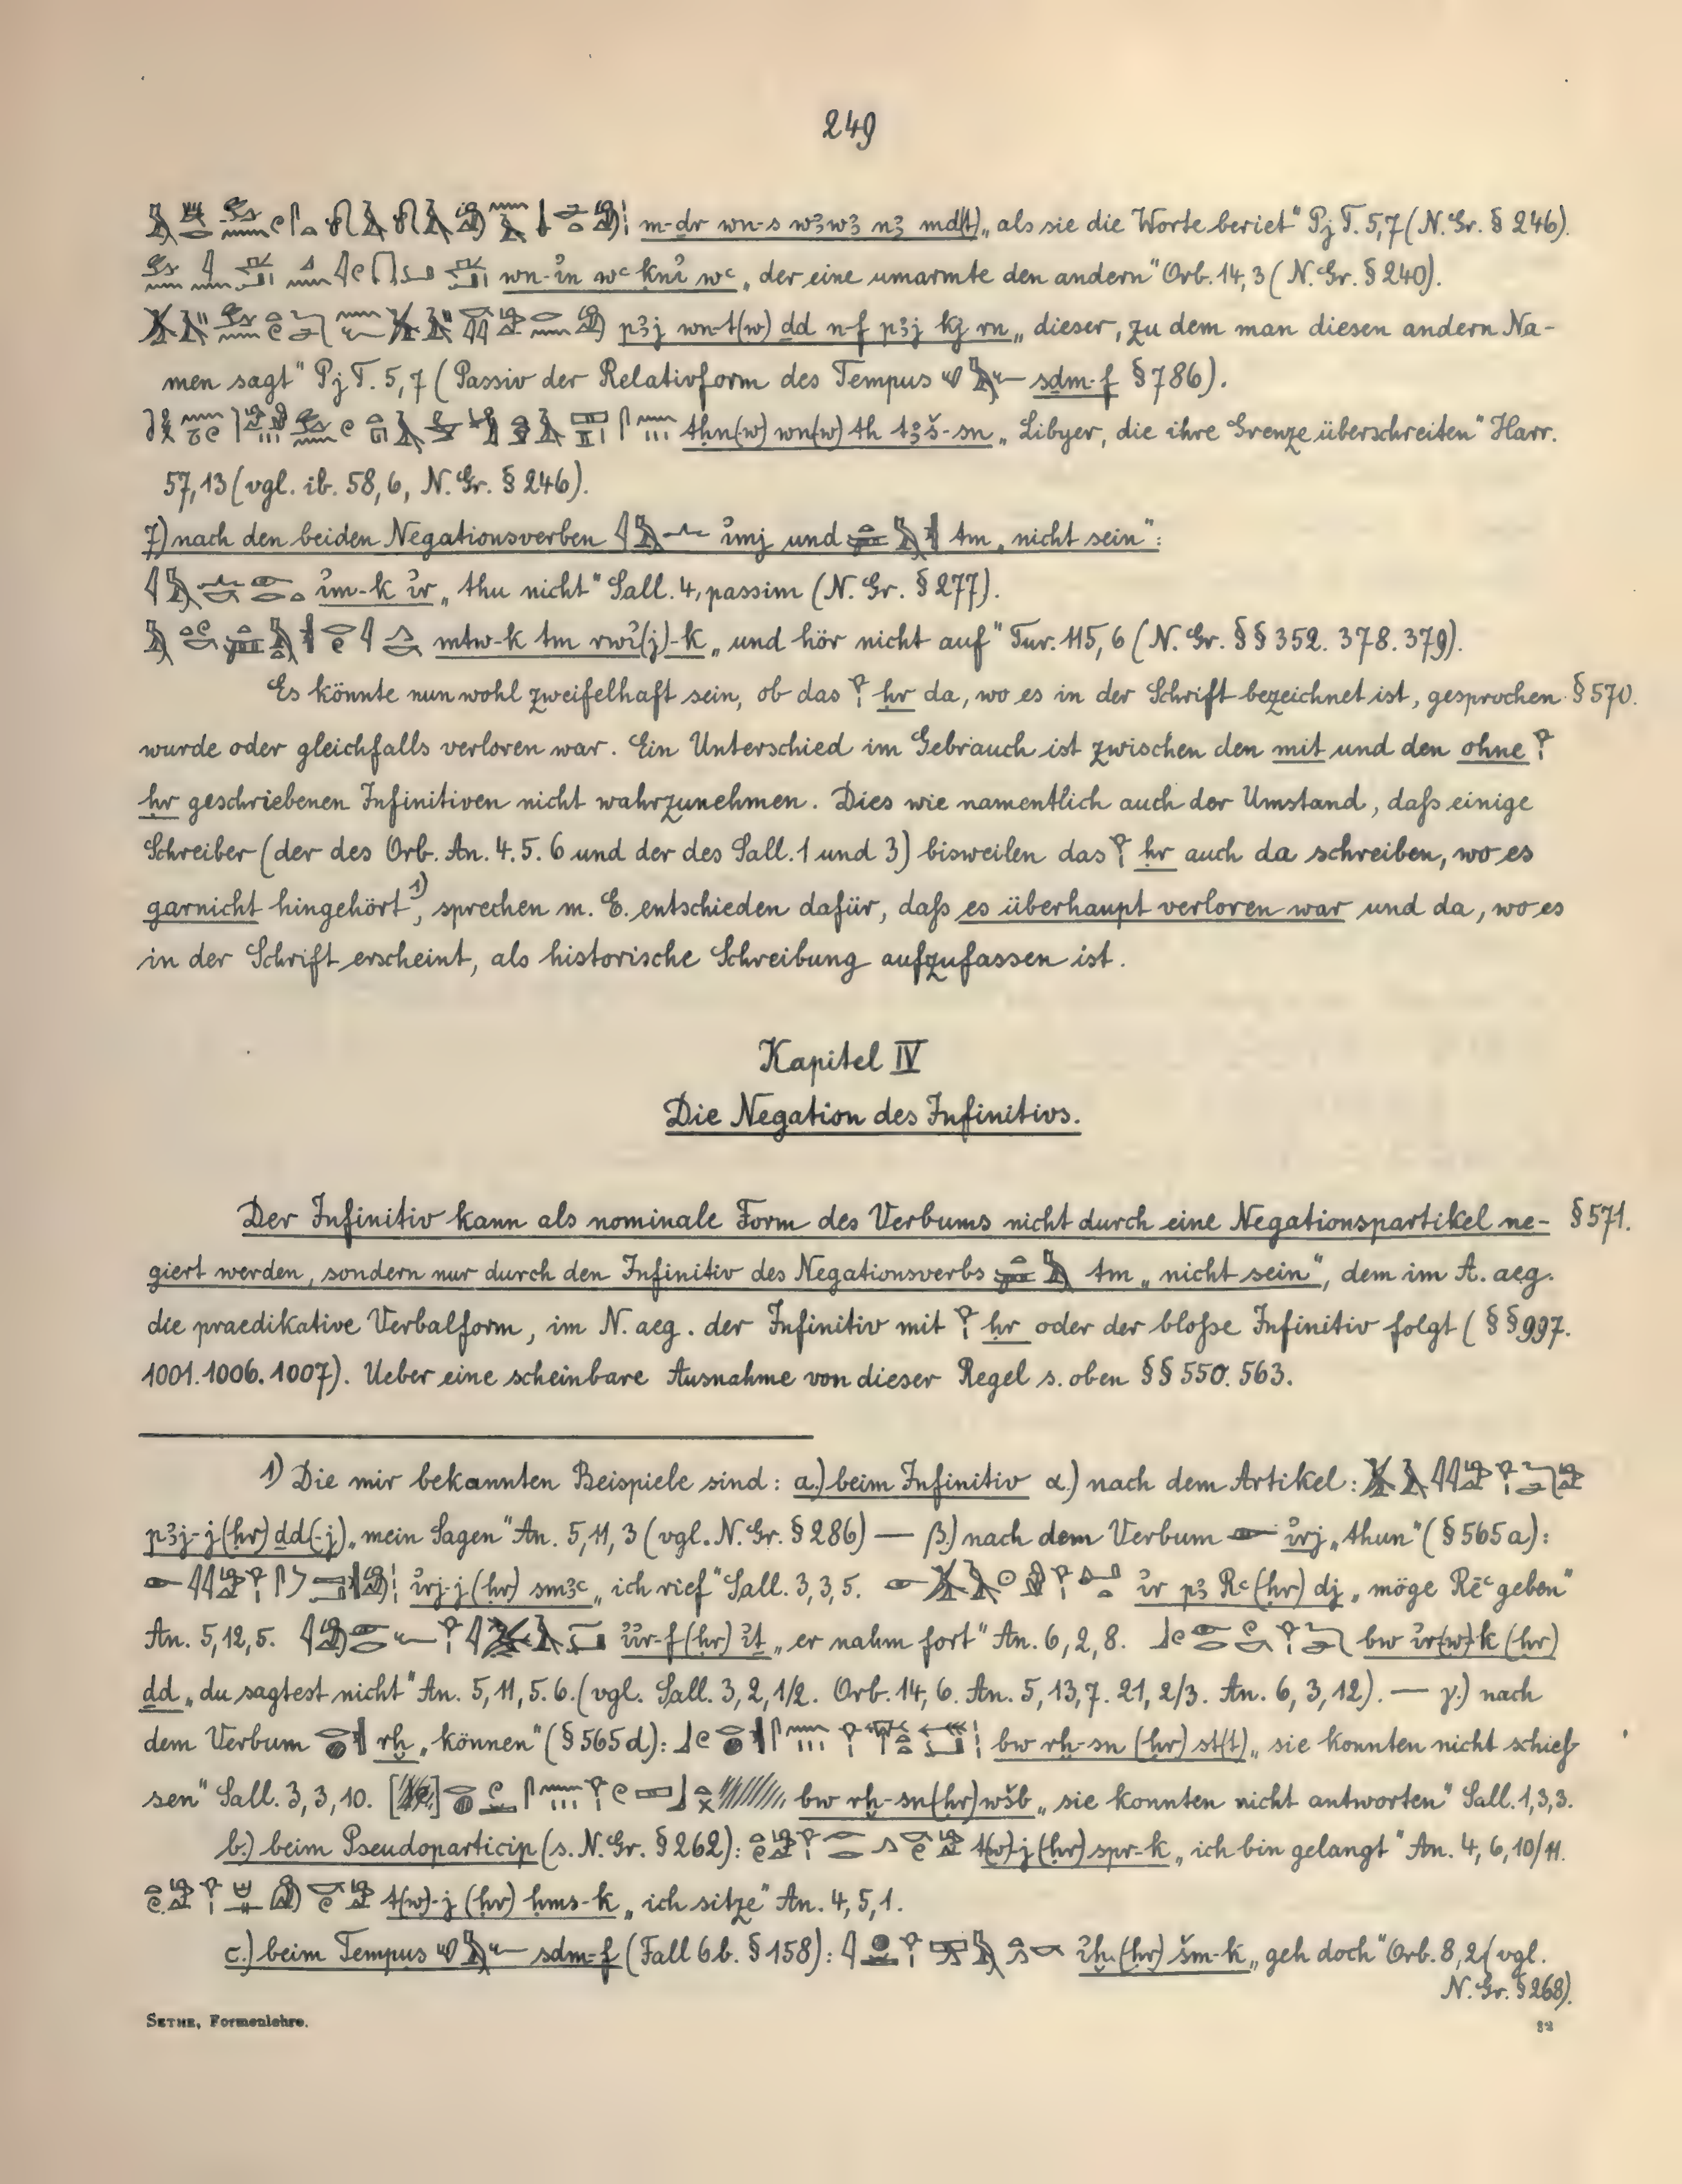 249
m-dr wn-s wꜣwꜣ nꜣ md(t) „als sie die Worte beriet“ Pj T. 5,7 (N. Gr. § 246).
wn-ỉn wꜥ knỉ wꜥ „der eine umarmte den andern“ Orb. 14,3 (N. Gr. § 240).
pꜣj wn-t(w) ḏd n-f pꜣj kj rn „dieser, zu dem man diesen andern Na-
men sagt“ Pj T. 5,7 (Passiv der Relativform des Tempus sḏm-f § 786).
thn(w) wn(w) th tꜣš-sn „Libyer, die ihre Grenze überschreiten“ Harr.
57,13 (vgl. ib. 58,6, N. Gr. § 246).
7) nach den beiden Negationsverben ỉmj und tm „nicht sein“:
ỉm-k ỉr „thu nicht“ Sall. 4, passim (N. Gr. § 277).
mtw-k tm rwỉ(j)-k „und hör nicht auf“ Tur. 115,6 (N. Gr. §§ 352. 378. 379).
Es könnte nun wohl zweifelhaft sein, ob das ḥr da, wo es in der Schrift bezeichnet ist, gesprochen § 570.
wurde oder gleichfalls verloren war. Ein Unterschied im Gebrauch ist zwischen den mit und den ohne
ḥr geschriebenen Infinitiven nicht wahrzunehmen. Dies wie namentlich auch der Umstand, daß einige
Schreiber (der des Orb. An. 4. 5. 6 und der des Sall. 1 und 3) bisweilen das ḥr auch da schreiben, wo es
garnicht hingehört 1), sprechen m. E. entschieden dafür, daß es überhaupt verloren war und da, wo es
in der Schrift erscheint, als historische Schreibung aufzufassen ist.
Kapitel IV
Die Negation des Infinitivs.
Der Infinitiv kann als nominale Form des Verbums nicht durch eine Negationspartikel ne- § 571.
giert werden, sondern nur durch den Infinitiv des Negationsverbs tm „nicht sein“, dem im A. aeg.
die praedikative Verbalform, im N. aeg. der Infinitiv mit ḥr oder der bloße Infinitiv folgt (§§ 997.
1001. 1006. 1007). Ueber eine scheinbare Ausnahme von dieser Regel s. oben §§ 550. 563.
1) Die mir bekannten Beispiele sind: a.) beim Infinitiv α.) nach dem Artikel:
pꜣj-j (ḥr) ḏd(-j) „mein Sagen“ An. 5,11,3 (vgl. N. Gr. § 286) — β.) nach dem Verbum ỉrj „thun“ (§ 565a):
ỉrj-j (ḥr) smꜣꜥ „ich rief“ Sall. 3,3,5. ỉr pꜣ Rꜥ (ḥr) dj „möge Rēꜥ geben“
An. 5,12,5. ỉỉr-f (ḥr) ỉt „er nahm fort“ An. 6,2,8. bw ỉr(w)-k (ḥr)
ḏd „du sagtest nicht“ An. 5,11,5. 6. (vgl. Sall. 3,2,1/2. Orb. 14,6. An. 5,13,7. 21,2/3. An. 6,3,12). — γ.) nach
dem Verbum rḫ „können“ (§ 565d): bw rḫ-sn (ḥr) st(t) „sie konnten nicht schieß-
sen“ Sall. 3,3,10. bw rḫ-sn (ḥr) wšb „sie konnten nicht antworten“ Sall. 1,3,3.
b.) beim Pseudoparticip (s. N. Gr. § 262): t(w)-j (ḥr) spr-k „ich bin gelangt“ An. 4,6,10/11.
t(w)-j (ḥr) ḥms-k „ich sitze“ An. 4,5,1.
c.) beim Tempus sḏm-f (Fall 6b. § 158): ỉḫ (ḥr) šm-k „geh doch“ Orb. 8,2 (vgl.
N. Gr. § 268).
SETHE, Formenlehre. 32